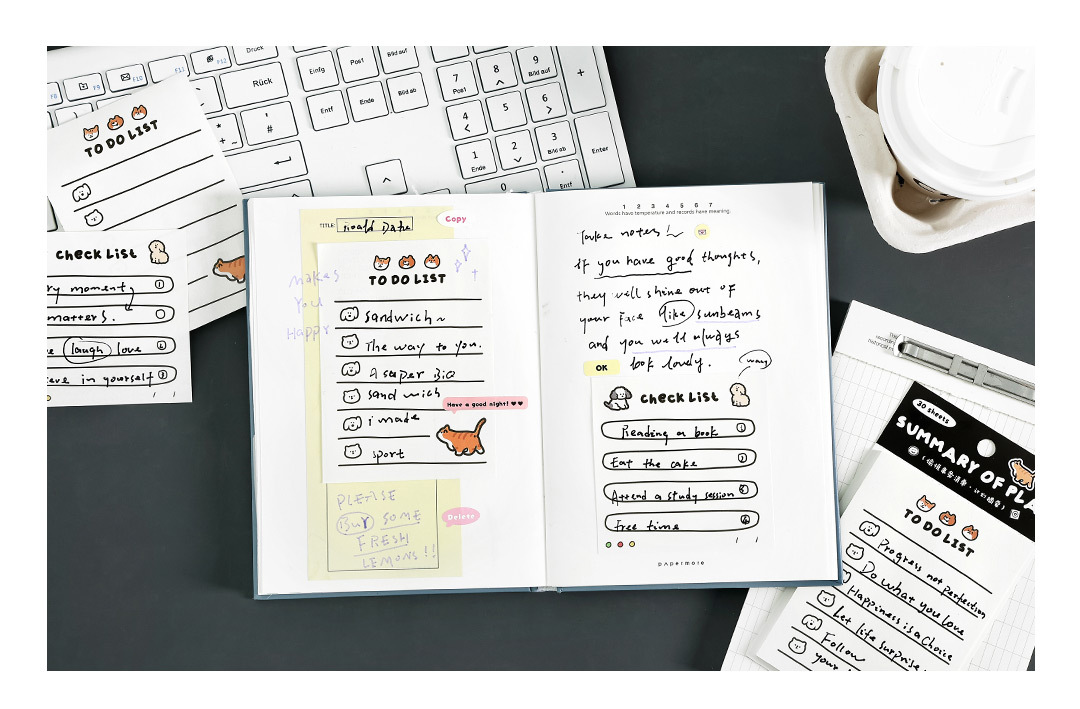 Druck
F8
F9
F10
F11
F12
Rück
Einfg
Post
Bild auf
Entf
Ende
Bild ab
7
Post
8
9
Bild auf
+
4
5
6
1
Ende
2
3
Bild ab
Enter
0
Entf
TO DO LIST
CHECK LIST
ry moment,
matters.
laugh love
eve in yourself
TITLE:
Copy
makes
You
Happy
TO DO LIST
sandwich~
The way to you.
a super BIG
sand wich
Have a good night! ♥♥
i made
sport
PLEASE
BUY SOME
FRESH
LEMONS!!
Delete
1 2 3 4 5 6 7
Words have temperature and records have meaning.
Take notes!
If you have good thoughts,
they will shine out of
your face like sunbeams
and you will always
look lovely.
OK
CHECK LIST
Reading a book
Eat the cake
Attend a study session
Free time
papermore
30 sheets
SUMMARY OF PLA
TO DO LIST
Progress not perfection
Do what you love
Happiness is a choice
Let life surprise
Follow
your